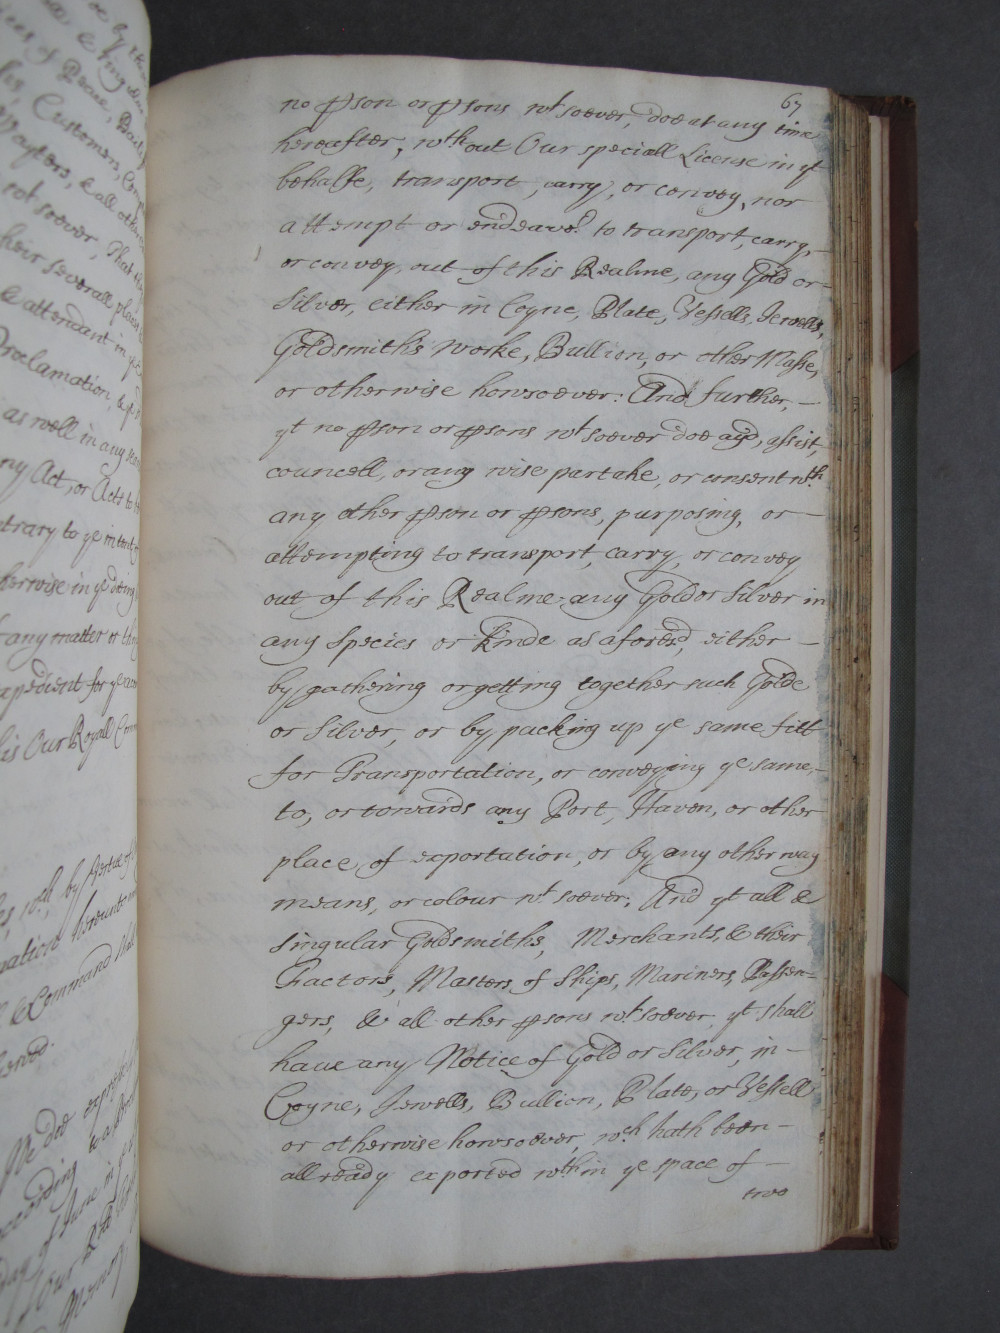 67
no pson or psons wt soever, doe at any time
hereafter, wth out Our speciall License in yt
behalfe, transport, carry, or convey, nor
attempt or endeavor. to transport, carry,
or convey, out of this Realme, any Gold or
Silver, either in Coyne, Plate, Vessells, Jewells,
Goldsmiths worke, Bullion, or other Masse,
or otherwise howsoever: And further,
yt no pson or psons wt soever doe ayd, assist,
councell, or any wise partake, or consent wth
any other pson or psons, purposing, or
attempting to transport, carry, or convey
out of this Realme any Gold or Silver in
any Species or kinde as aforesd, either
by gathering or getting together such Golde
or Silver, or by packing up ye same fitt
for Transportation, or conveying ye same,
to, or towards any Port, Haven, or other
place of exportation, or by any other way
means, or colour wt soever; And yt all &
singular Goldsmiths, Merchants, & their
Factors, Masters of Ships, Mariners, Passen=
gers, & all other psons wt soever, yt shall
have any Notice of Gold or Silver, in
Coyne, Jewells, Bullion, Plate, or Vessell
or otherwise howsoever, wch hath been
allready exported wthin ye space of
two
Customers,
& all other
wt soever, That
their severall places
& attendant in
Proclamation, &
as well in any
ny Act, or Acts to
trary to ye
herwise in ye doing
any matter or
xpedient for ye
is Our Royall
wch, by Vertue of
& Command
We doe
according
day of June in
Our